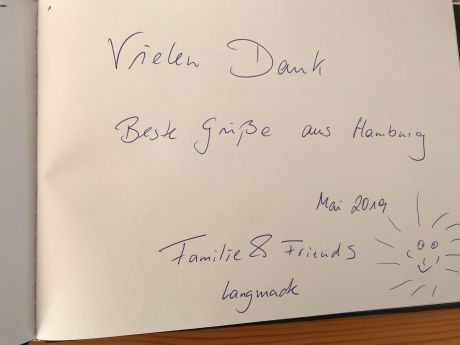 Vielen Dank
Beste Grüße aus Hamburg
Mai 2019
Familie & Friends
Langmack